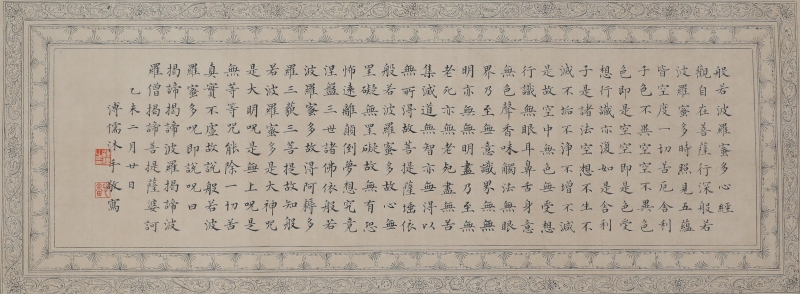 般若波羅蜜多心經
觀自在菩薩行深般若
波羅蜜多時照見五蘊
皆空度一切苦厄舍利
子色不異空空不異色
色即是空空即是色受
想行識亦復如是舍利
子是諸法空想不生不
滅不垢不淨不增不減
是故空中無色無受想
行識無眼耳鼻舌身意
無色聲香味觸法無眼
界乃至無意識界無無
明亦無無明盡乃至無
老死亦無老死盡無苦
集滅道無智亦無得以
無所得故菩提薩埵依
般若波羅蜜多故心無
罣礙無罣礙故無有恐
怖遠離顛倒夢想究竟
涅盤三世諸佛依般若
波羅蜜多故得阿耨多
羅三藐三菩提故知般
若波羅蜜多是大神咒
是大明咒是無上咒是
無等等咒能除一切苦
真實不虛故說般若波
羅蜜多咒即說咒曰
揭諦揭諦波羅揭諦波
羅僧揭諦菩提薩婆訶
乙未二月廿日
溥儒沐手敬寫